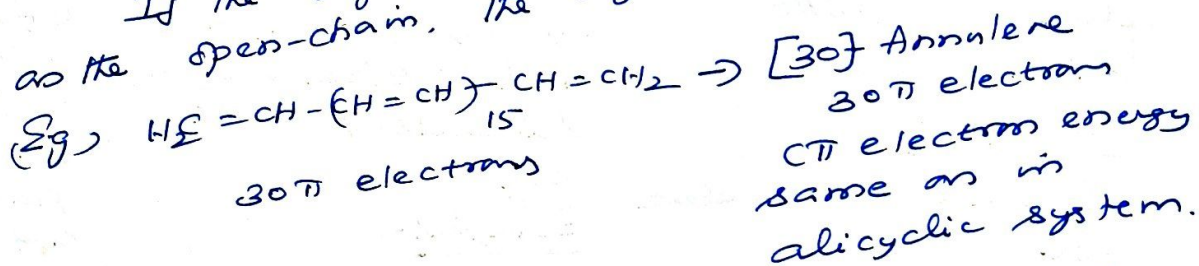 If the
as the open-chain. The
Eg, HC = CH - (CH = CH)15 CH = CH2 → [30] Annulene
30π electrons 30π electrons
(π electron energy
same as in
alicyclic system.